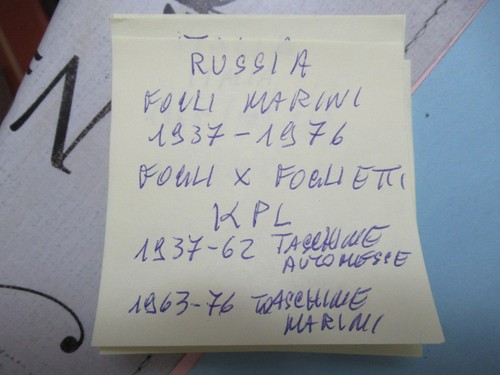 RUSSIA
FOGLI MARINI
1937-1976
FOGLI X FOGLIETTI
KPL
1937-62 TASCHINE
AUTOMESSE
1963-76 TASCHINE
MARINI